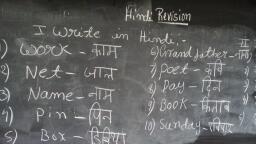 Hindi Revision
I Write in Hindi:-
1) Work - काम
2) Net - जाल
3) Name - नाम
4) Pin - पिन
5) Box - डिबिया
6) Grand father -
7) Poet - कवि
8) Day - दिन
9) Book - किताब
10) Sunday - रविवार
II